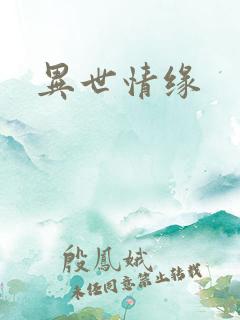 異世情缘
殷鳳娥
未经同意禁止转载